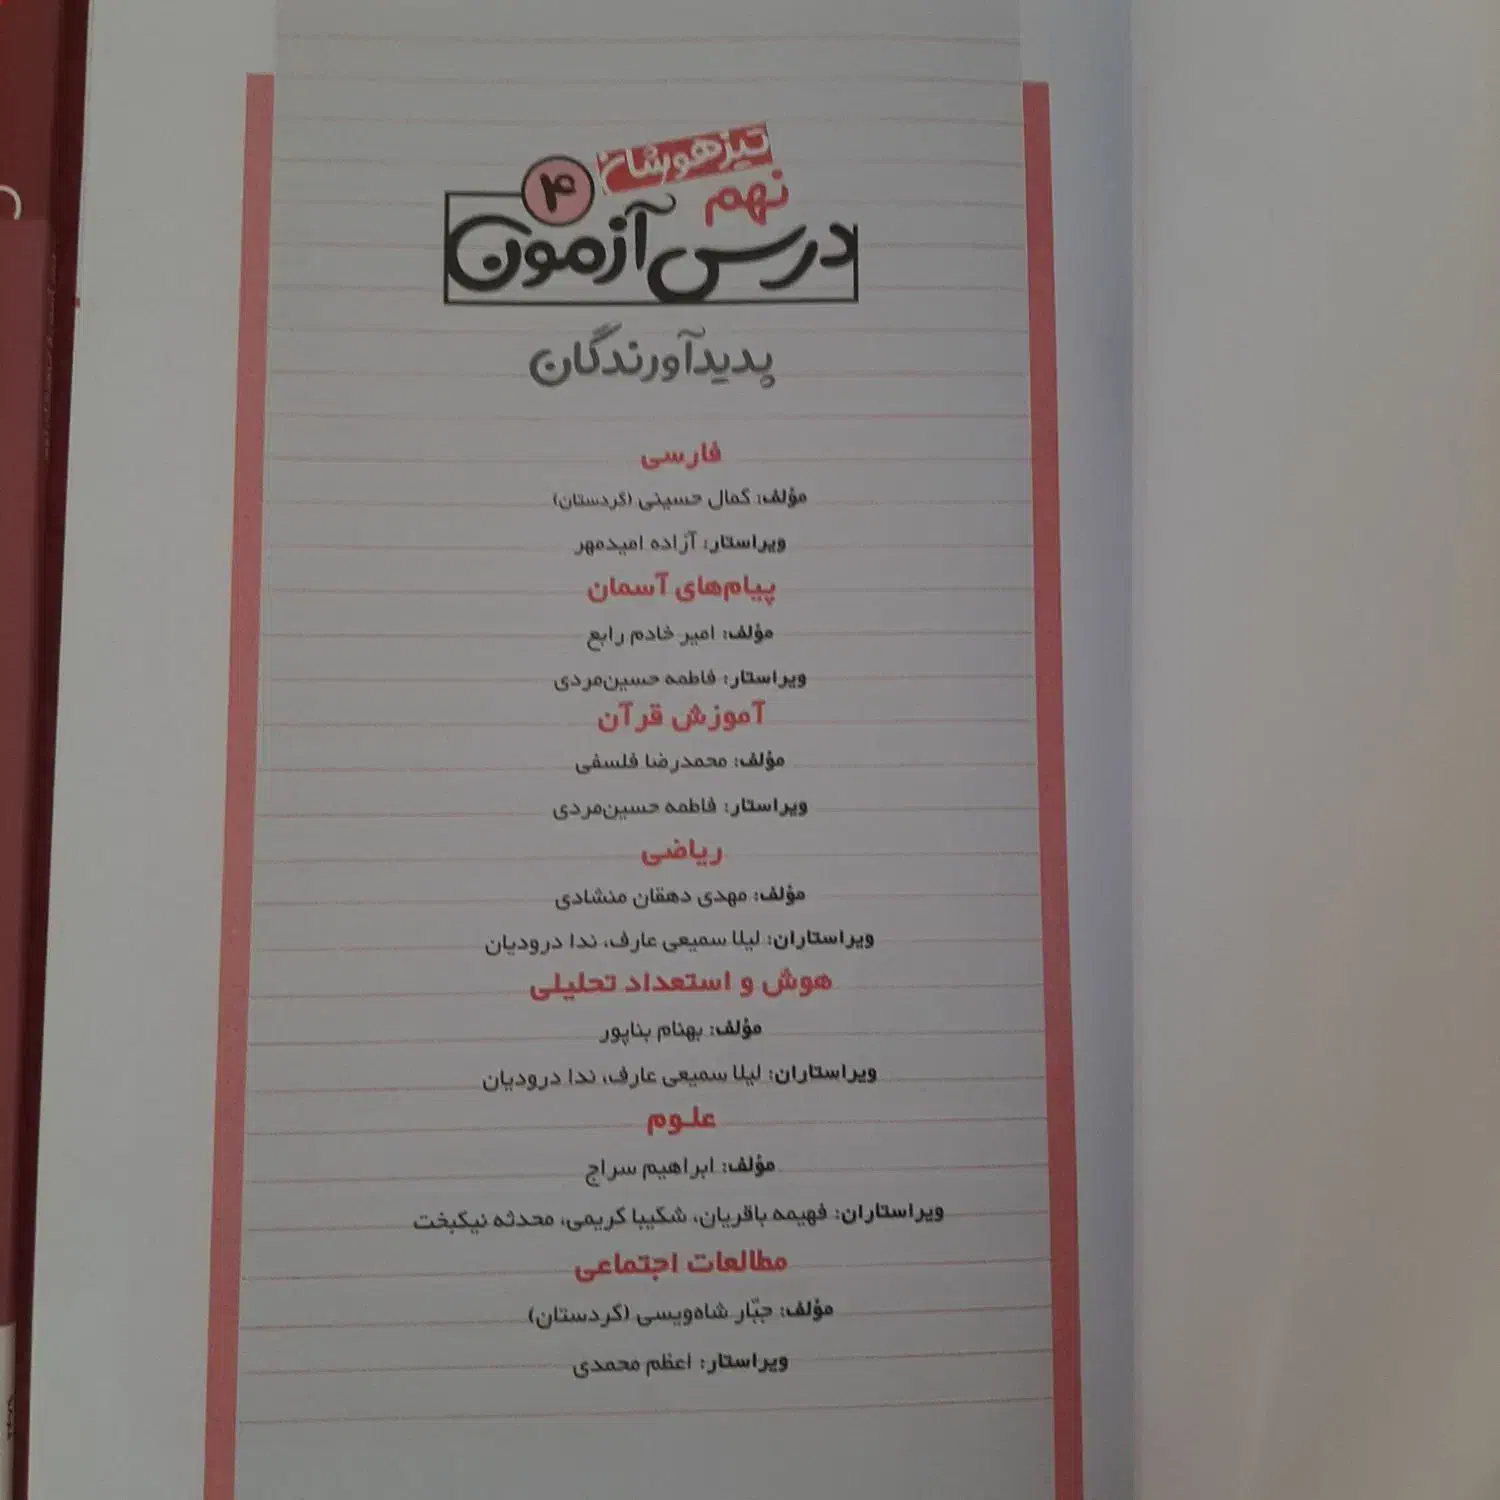 تیزهوشان
نهم
۴
درس آزمون
پدیدآورندگان
فارسی
مؤلف: کمال حسینی (کردستان)
ویراستار: آزاده امیدمهر
پیام‌های آسمان
مؤلف: امیر خادم رابع
ویراستار: فاطمه حسین‌مردی
آموزش قرآن
مؤلف: محمدرضا فلسفی
ویراستار: فاطمه حسین‌مردی
ریاضی
مؤلف: مهدی دهقان منشادی
ویراستاران: لیلا سمیعی عارف، ندا درودیان
هوش و استعداد تحلیلی
مؤلف: بهنام بناپور
ویراستاران: لیلا سمیعی عارف، ندا درودیان
علـوم
مؤلف: ابراهیم سراج
ویراستاران: فهیمه باقریان، شکیبا کریمی، محدثه نیکبخت
مطالعات اجتماعی
مؤلف: جبّار شاه‌ویسی (کردستان)
ویراستار: اعظم محمدی